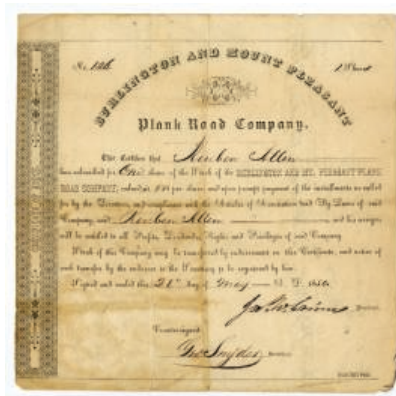 No. 126
1 Share
BURLINGTON AND MOUNT PLEASANT
Plank Road Company.
This Certifies that Reuben Allen
has subscribed for One share of the Stock of the BURLINGTON AND MT. PLEASANT PLANK
ROAD COMPANY, valued at $50 per share and upon prompt payment of the installments as called
for by the Directors, and compliance with the Articles of Association and By Laws of said
Company, said Reuben Allen and his assigns
will be entitled to all Profits, Dividends, Rights and Privileges of said Company.
Stock of this Company may be transferred by endorsement on this Certificate, and notice of
such transfer by the endorser to the Secretary to be registered by him.
Signed and sealed this day of May A. D. 1850.
President
Countersigned
Geo Snyder, Secretary